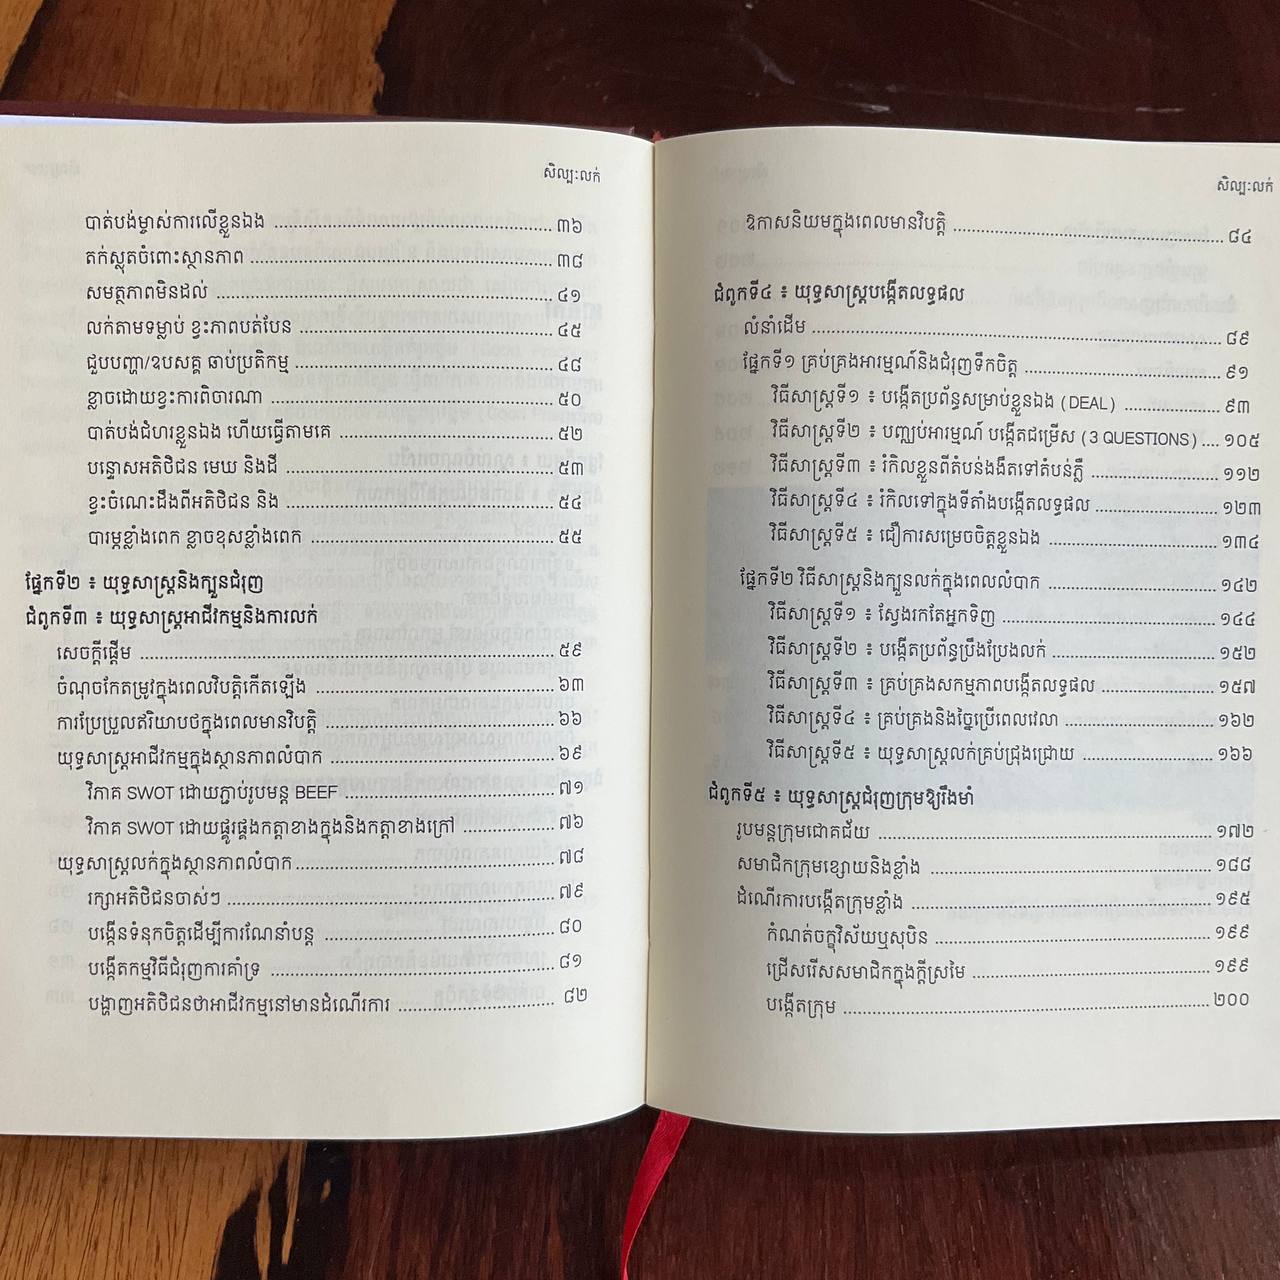 សិល្បៈលក់
បាត់បង់ម្ចាស់ការលើខ្លួនឯង ........ ៣៦
តក់ស្លុតចំពោះស្ថានភាព ........ ៣៨
សមត្ថភាពមិនដល់ ........ ៤១
លក់តាមទម្លាប់ ខ្វះភាពបត់បែន ........ ៤៥
ជួបបញ្ហា/ឧបសគ្គ ឆាប់ប្រតិកម្ម ........ ៤៨
ខ្លាចដោយខ្វះការពិចារណា ........ ៥០
បាត់បង់ជំហរខ្លួនឯង ហើយធ្វើតាមគេ ........ ៥២
បន្ទោសអតិថិជន មេឃ និងដី ........ ៥៣
ខ្វះចំណេះដឹងពីអតិថិជន និង ........ ៥៤
បារម្ភខ្លាំងពេក ខ្លាចខុសខ្លាំងពេក ........ ៥៥
ផ្នែកទី២ ៖ យុទ្ធសាស្ត្រនិងក្បួនជំរុញ
ជំពូកទី៣ ៖ យុទ្ធសាស្ត្រអាជីវកម្មនិងការលក់
សេចក្ដីផ្ដើម ........ ៥៩
ចំណុចកែតម្រូវក្នុងពេលវិបត្តិកើតឡើង ........ ៦៣
ការប្រែប្រួលឥរិយាបថក្នុងពេលមានវិបត្តិ ........ ៦៦
យុទ្ធសាស្ត្រអាជីវកម្មក្នុងស្ថានភាពលំបាក ........ ៦៩
វិភាគ SWOT ដោយភ្ជាប់រូបមន្ត BEEF ........ ៧១
វិភាគ SWOT ដោយផ្គូរផ្គងកត្តាខាងក្នុងនិងកត្តាខាងក្រៅ ........ ៧៦
យុទ្ធសាស្ត្រលក់ក្នុងស្ថានភាពលំបាក ........ ៧៨
រក្សាអតិថិជនចាស់ៗ ........ ៧៩
បង្កើនទំនុកចិត្តដើម្បីការណែនាំបន្ត ........ ៨០
បង្កើតកម្មវិធីជំរុញការគាំទ្រ ........ ៨១
បង្ហាញអតិថិជនថាអាជីវកម្មនៅមានដំណើរការ ........ ៨២
សិល្បៈលក់
ឱកាសនិយមក្នុងពេលមានវិបត្តិ ........ ៨៤
ជំពូកទី៤ ៖ យុទ្ធសាស្ត្របង្កើតលទ្ធផល
លំនាំដើម ........ ៨៩
ផ្នែកទី១ គ្រប់គ្រងអារម្មណ៍និងជំរុញទឹកចិត្ត ........ ៩១
វិធីសាស្ត្រទី១ ៖ បង្កើតប្រព័ន្ធសម្រាប់ខ្លួនឯង ( DEAL ) ........ ៩៣
វិធីសាស្ត្រទី២ ៖ បញ្ឈប់អារម្មណ៍ បង្កើតជម្រើស ( 3 QUESTIONS ) .... ១០៥
វិធីសាស្ត្រទី៣ ៖ រំកិលខ្លួនពីតំបន់ងងឹតទៅតំបន់ភ្លឺ ........ ១១២
វិធីសាស្ត្រទី៤ ៖ រំកិលទៅក្នុងទីតាំងបង្កើតលទ្ធផល ........ ១២៣
វិធីសាស្ត្រទី៥ ៖ ជឿការសម្រេចចិត្តខ្លួនឯង ........ ១៣៤
ផ្នែកទី២ វិធីសាស្ត្រនិងក្បួនលក់ក្នុងពេលលំបាក ........ ១៤២
វិធីសាស្ត្រទី១ ៖ ស្វែងរកតែអ្នកទិញ ........ ១៤៤
វិធីសាស្ត្រទី២ ៖ បង្កើតប្រព័ន្ធប្រឹងប្រែងលក់ ........ ១៥២
វិធីសាស្ត្រទី៣ ៖ គ្រប់គ្រងសកម្មភាពបង្កើតលទ្ធផល ........ ១៥៧
វិធីសាស្ត្រទី៤ ៖ គ្រប់គ្រងនិងច្នៃប្រើពេលវេលា ........ ១៦២
វិធីសាស្ត្រទី៥ ៖ យុទ្ធសាស្ត្រលក់គ្រប់ជ្រុងជ្រោយ ........ ១៦៦
ជំពូកទី៥ ៖ យុទ្ធសាស្ត្រជំរុញក្រុមឱ្យរឹងមាំ
រូបមន្តក្រុមជោគជ័យ ........ ១៧២
សមាជិកក្រុមខ្សោយនិងខ្លាំង ........ ១៨៨
ដំណើរការបង្កើតក្រុមខ្លាំង ........ ១៩៥
កំណត់ចក្ខុវិស័យឬសុបិន ........ ១៩៩
ជ្រើសរើសសមាជិកក្នុងក្ដីស្រមៃ ........ ១៩៩
បង្កើតក្រុម ........ ២០០